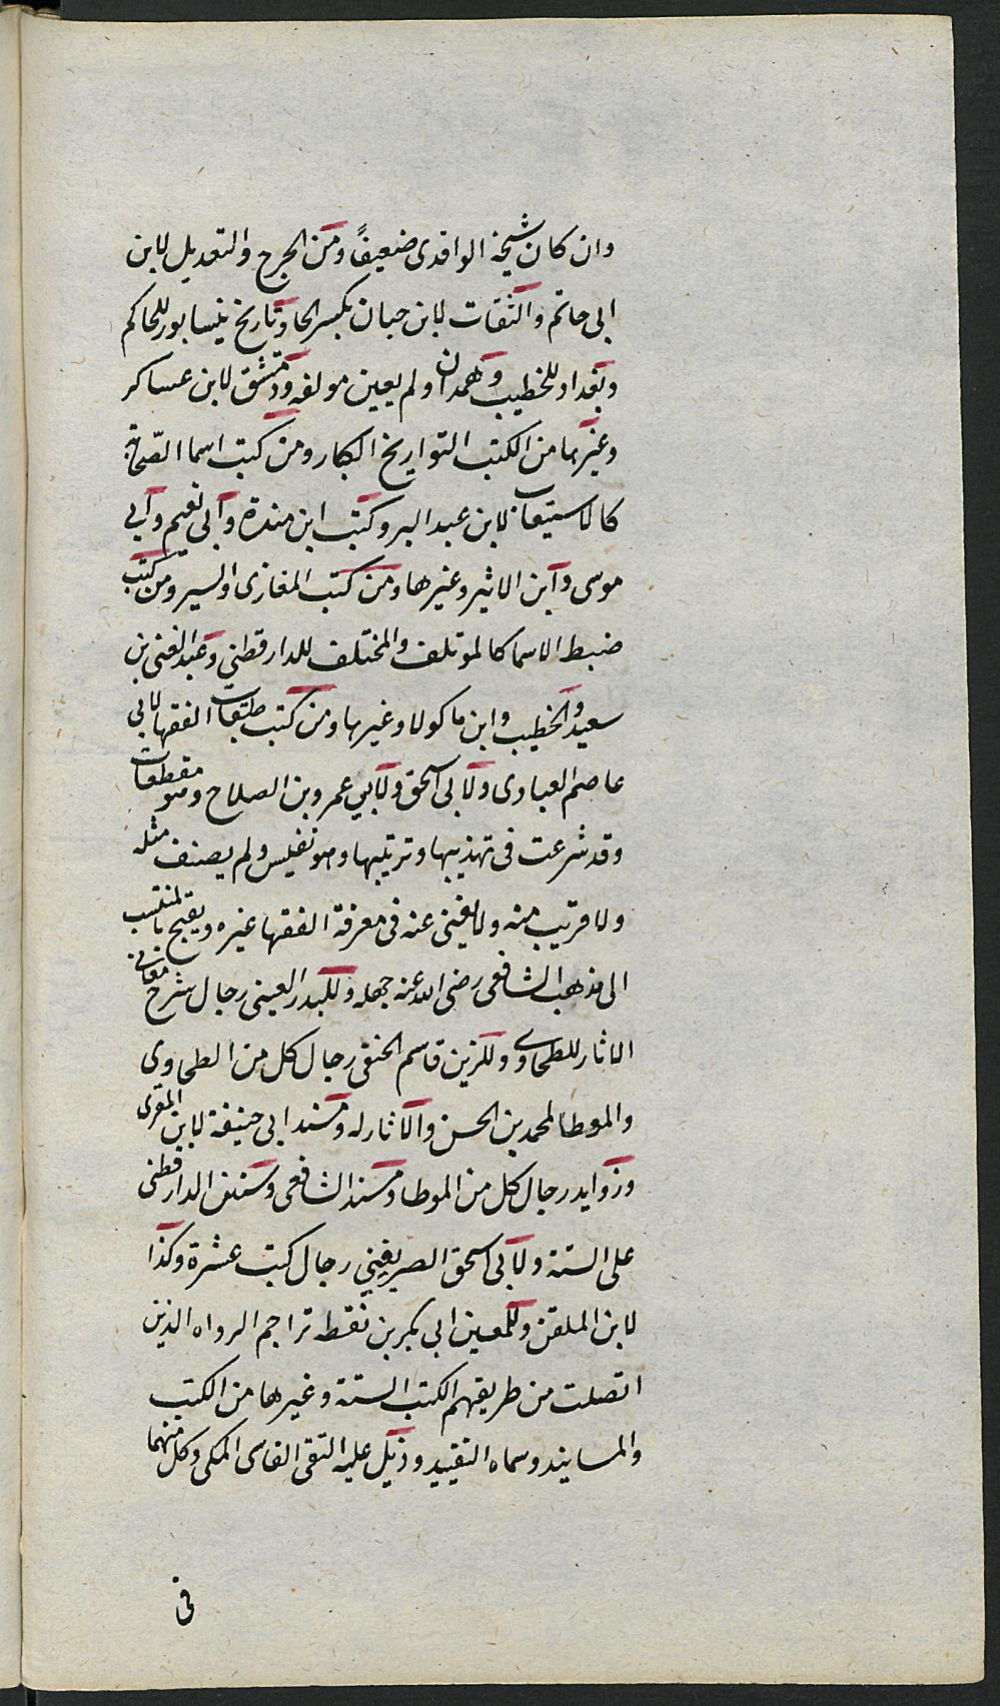 وان كان شيخه الواقدى ضعيفًا ومن الجرح والتعديل لابن
ابى حاتم والثقات لابن حبان بكسر الحا وتاريخ نيسابور للحاكم
وبغداد للخطيب وهمدان ولم يعين مولفه ودمشق لابن عساكر
وغيرها من الكتب التواريخ الكبار ومن كتب اسما الصّحابة
كالاستيعاب لابن عبد البر وكتب ابن مندة وابى نعيم وابى
موسى وابن الاثير وغيرها ومن كتب المغازى والسير ومن كتب
ضبط الاسما كالموتلف والمختلف للدارقطنى وعبد الغنى بن
سعيد والخطيب وابن ماكولا وغيرها ومن كتب طبقات الفقها لابى
عاصم العبادى ولابى اسحق ولابي عمرو بن الصلاح وهو مقطعات
وقد شرعت فى تهذيبها وترتيبها وهو نفيس ولم يصنف مثله
ولا قريب منه ولا يغنى عنه فى معرفة الفقها غيره ويقبح بالمنتسب
الى مذهب الشافعى رضى الله عنه جهله وللبدر العينى رجال شرح معانى
الاثار للطحاوى وللزين قاسم الحنفى رجال كل من الطحاوى
والموطا لمحمد بن الحسن والاثار له ومسند ابى حنيفة لابن المقرى
وزوايد رجال كل من الموطا ومسند الشافعى وسنن الدارقطنى
على الستة ولابى اسحق الصريفينى رجال كتب عشرة وكذا
لابن الملقن وللمعين ابى بكر بن نقطه تراجم الرواه الذين
اتصلت من طريقهم الكتب الستة وغيرها من الكتب
والمسانيد وسماه التقييد وذيل عليه التقى الفاسى المكى وكل منهما
فى